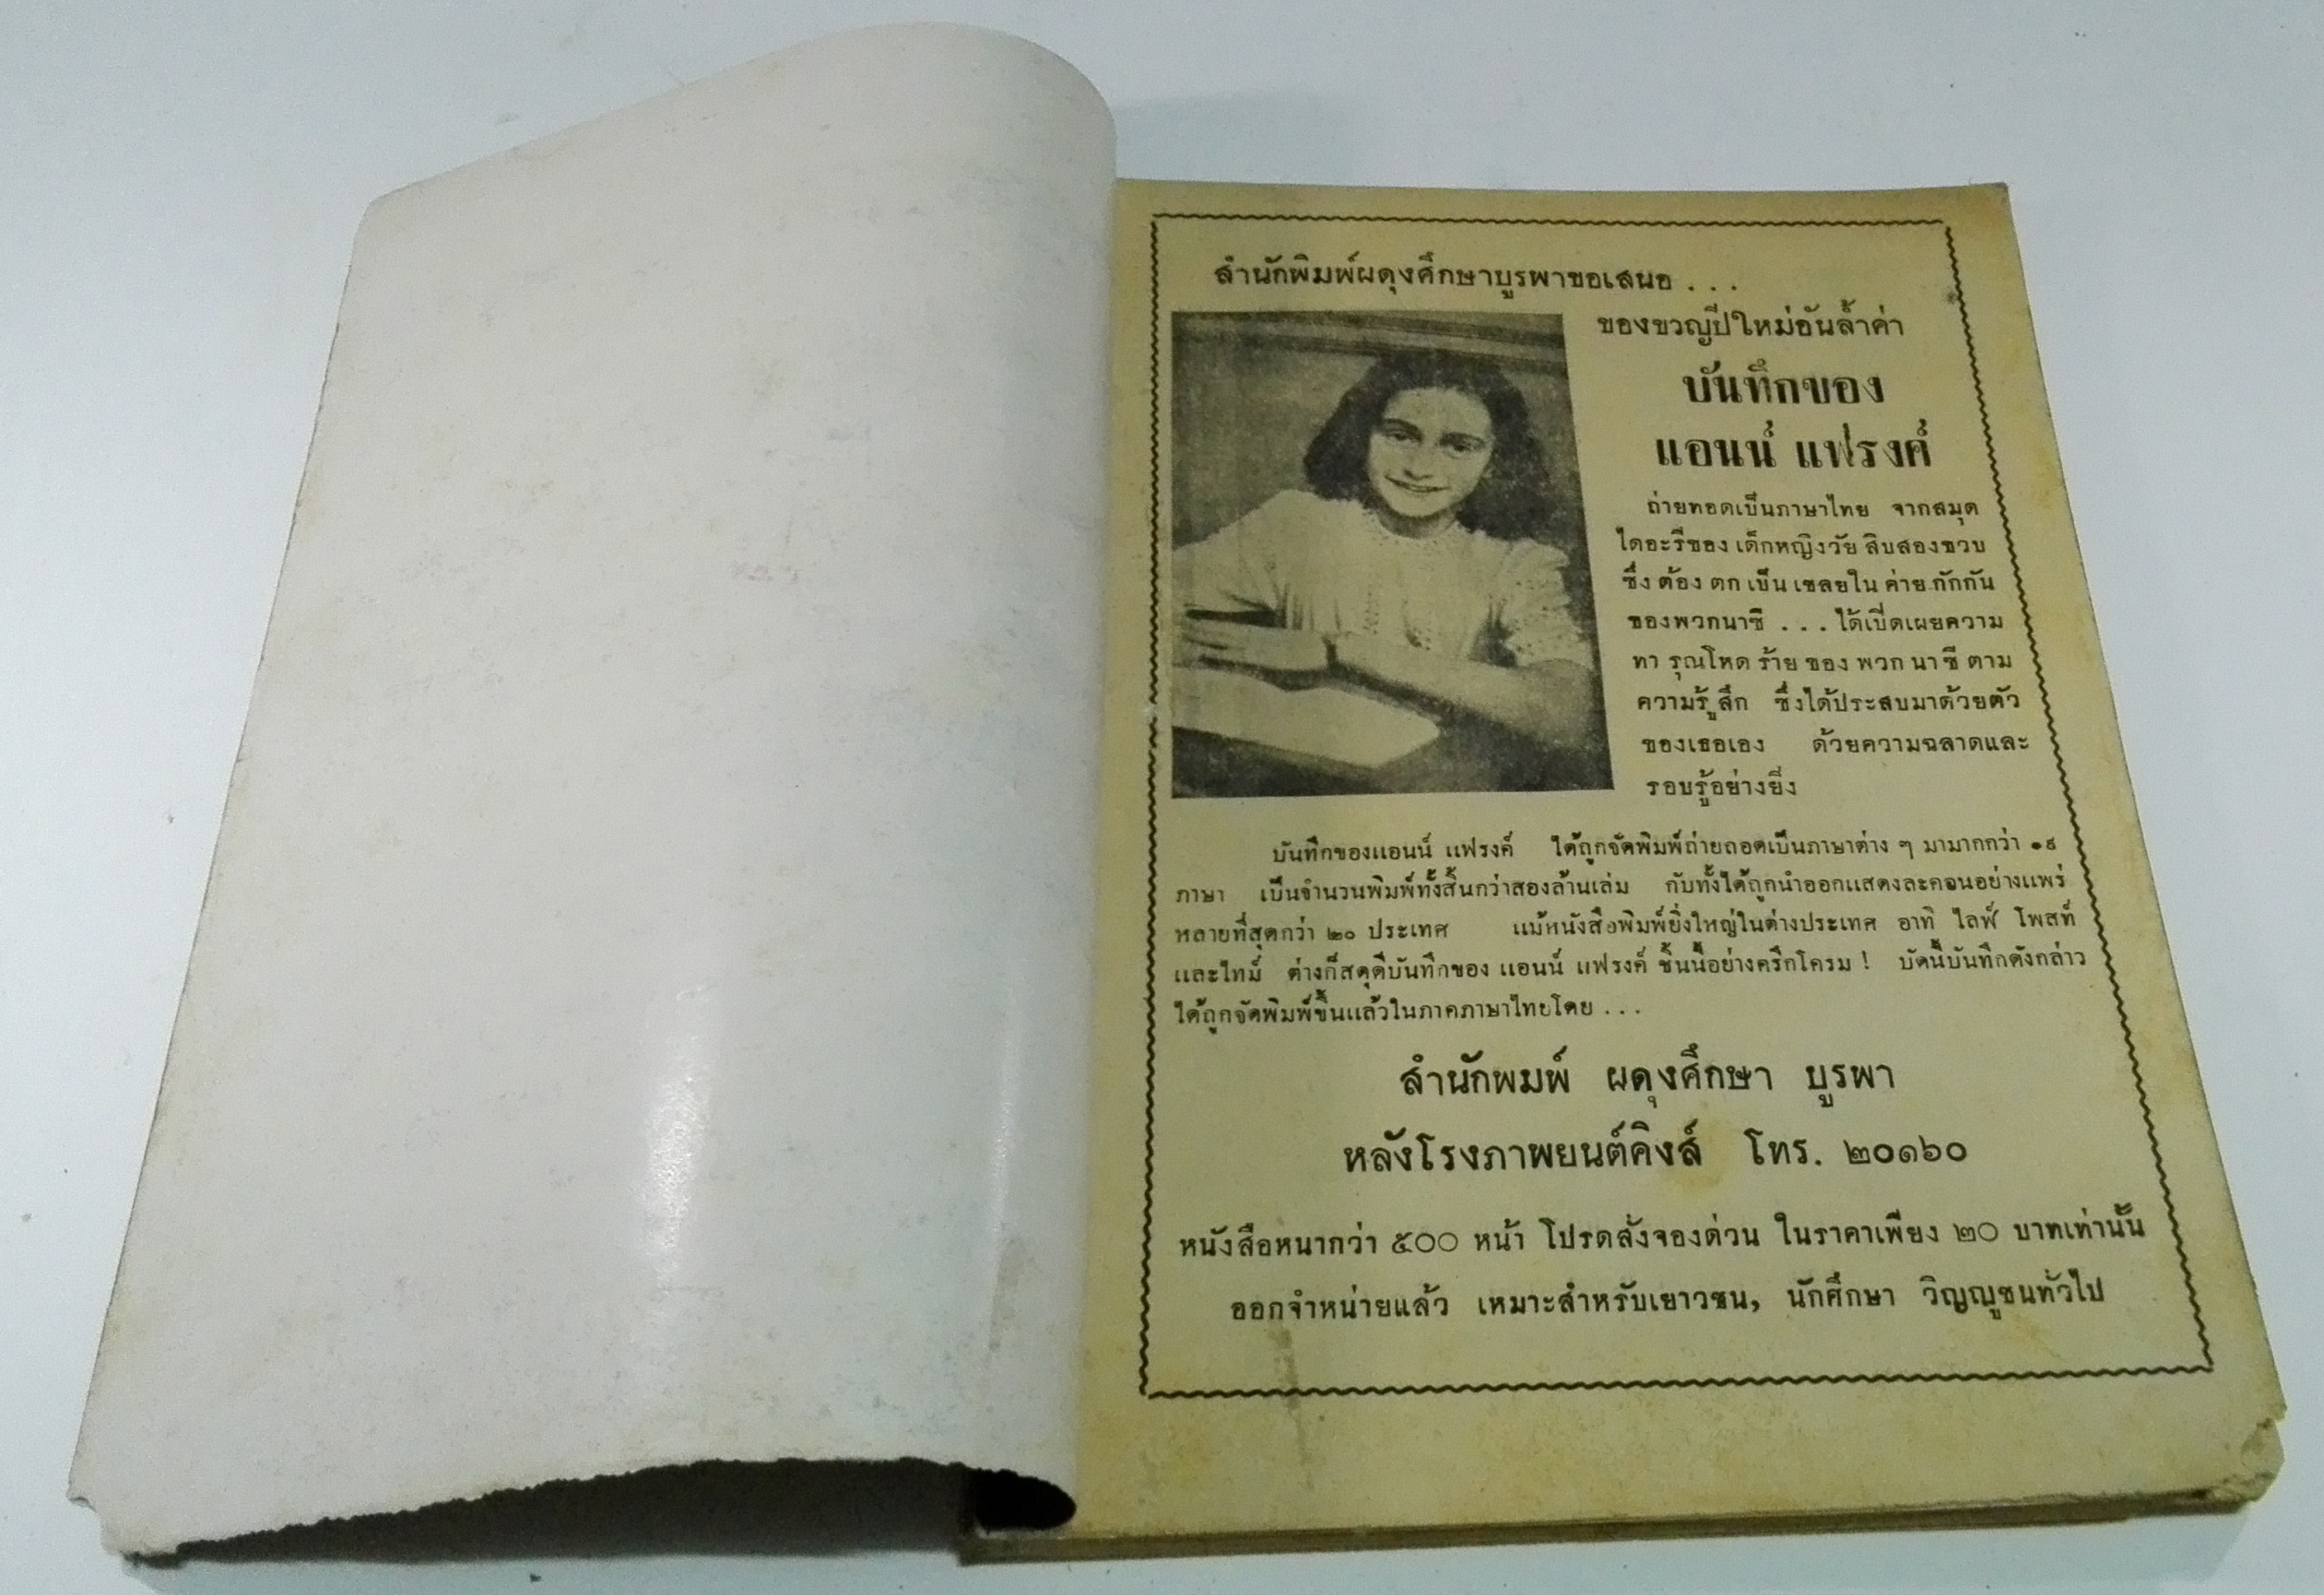 สำนักพิมพ์ผดุงศึกษาบูรพาขอเสนอ . . .
ของขวัญปีใหม่อันล้ำค่า
บันทึกของ
แอนน์ แฟรงค์
ถ่ายทอดเป็นภาษาไทย จากสมุด
ไดอะรีของ เด็กหญิงวัย สิบสองขวบ
ซึ่ง ต้อง ตก เป็น เชลยใน ค่าย กักกัน
ของพวกนาซี . . . ได้เปิดเผยความ
ทา รุณโหด ร้าย ของ พวก นา ซี ตาม
ความรู้สึก ซึ่งได้ประสบมาด้วยตัว
ของเธอเอง ด้วยความฉลาดและ
รอบรู้อย่างยิ่ง
บันทึกของแอนน์ แฟรงค์ ได้ถูกจัดพิมพ์ถ่ายถอดเป็นภาษาต่าง ๆ มามากกว่า
ภาษา เป็นจำนวนพิมพ์ทั้งสิ้นกว่าสองล้านเล่ม กับทั้งได้ถูกนำออกแสดงละคอนอย่างแพร่
หลายที่สุดกว่า ๒๐ ประเทศ แม้หนังสือพิมพ์ยิ่งใหญ่ในต่างประเทศ อาทิ ไลฟ์ โพสท์
และไทม์ ต่างก็สดุดีบันทึกของ แอนน์ แฟรงค์ ชิ้นนี้อย่างครึกโครม ! บัดนี้บันทึกดังกล่าว
ได้ถูกจัดพิมพ์ขึ้นแล้วในภาคภาษาไทยโดย . . .
สำนักพมพ์ ผดุงศึกษา บูรพา
หลังโรงภาพยนต์คิงส์ โทร. ๒๐๑๖๐
หนังสือหนากว่า ๕๐๐ หน้า โปรดสั่งจองด่วน ในราคาเพียง ๒๐ บาทเท่านั้น
ออกจำหน่ายแล้ว เหมาะสำหรับเยาวชน, นักศึกษา วิญญูชนทั่วไป